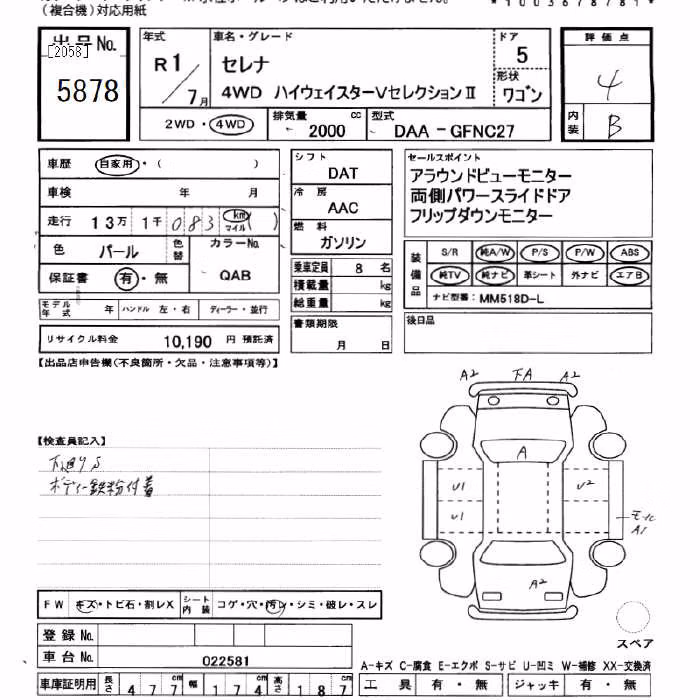 (複合機)対応用紙
*1003678781*
出品No.
[2058]
5878
年式
R1/7月
車名・グレード
セレナ
4WD ハイウェイスターVセレクションⅡ
ドア
5
形状
ワゴン
評価点
4
内装
B
2WD・4WD
排気量
2000 cc
型式
DAA-GFNC27
車歴 自家用・( )
車検 年 月
走行 13万 1千 083 km マイル ( )
色 パール 色替
カラーNo. QAB
保証書 有・無
モデル年式 年 ハンドル 左・右 ディーラー・並行
リサイクル料金 10,190 円 預託済
シフト
DAT
冷房
AAC
燃料
ガソリン
乗車定員 8 名
積載量 kg
総重量 kg
書類期限
月 日
セールスポイント
アラウンドビューモニター
両側パワースライドドア
フリップダウンモニター
装備品
S/R 純A/W P/S P/W ABS
純TV 純ナビ 革シート 外ナビ エアB
ナビ型番: MM518D-L
後日品
【出品店申告欄(不良箇所・欠品・注意事項等)】
【検査員記入】
下廻りS
ボディー鉄粉付着
A2 下A A2
A
U1 U2
U1
モール
A1
A2
スペア
FW キズ・トビ石・割レX
シート内装 コゲ・穴・汚レ・シミ・破レ・スレ
登録No.
車台No. 022581
車庫証明用 長さ 477cm 幅 174cm 高さ 187cm
A-キズ C-腐食 E-エクボ S-サビ U-凹ミ W-補修 XX-交換済
工具 有・無 ジャッキ 有・無